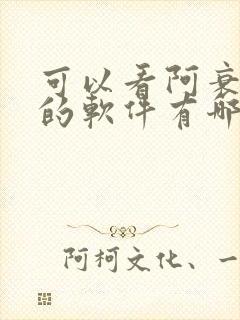 可以看阿衰
的軟件有哪
阿柯文化、一